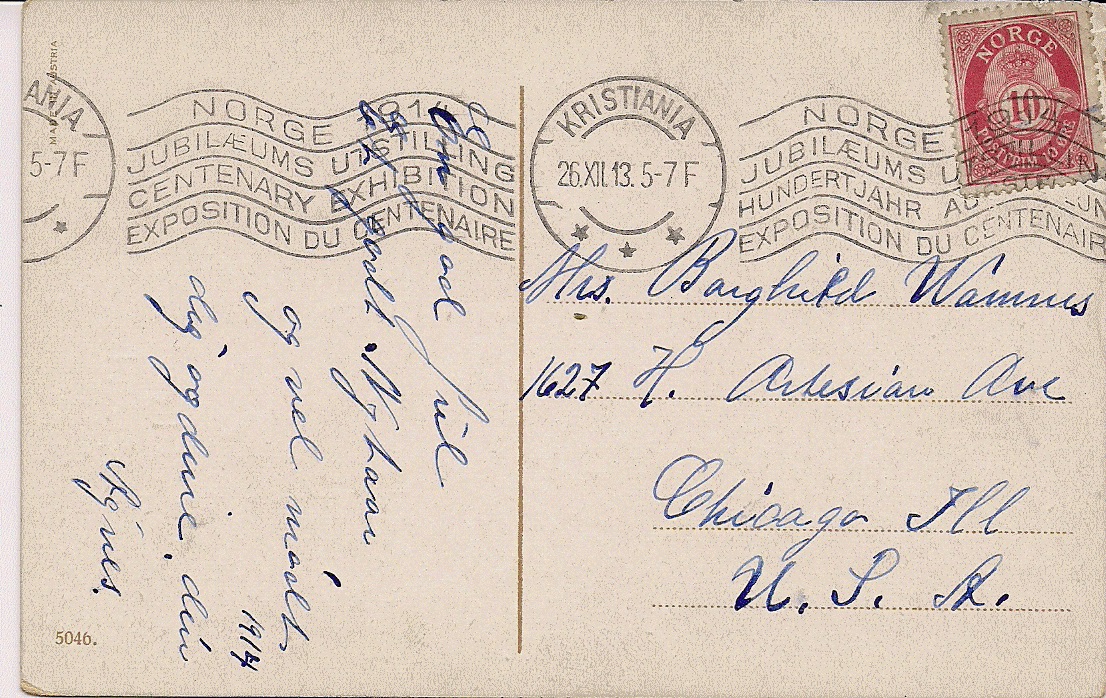 MADE IN AUSTRIA
ANIA
5-7 F
NORGE 1914
JUBILÆUMS UTSTILLING
CENTENARY EXHIBITION
EXPOSITION DU CENTENAIRE
KRISTIANIA
26.XII.13. 5-7 F
NORGE
JUBILÆUMS U
HUNDERTJAHR AU
EXPOSITION DU CENTENAIR
NORGE
10
POSTFRIM. 10 ØRE
En god Jul
et godt Nytaar
og vel mødt
1914
dig og dine. din
Agnes.
Mrs. Borghild Wammes
1627 N. Artesian Ave
Chicago Ill
U. S. A.
5046.